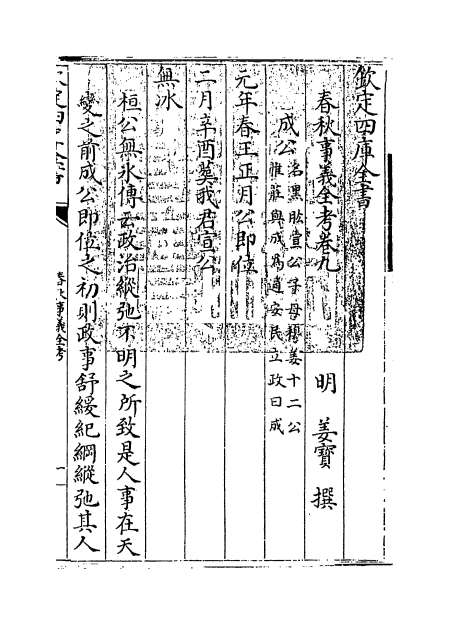 欽定四庫全書
春秋事義全考卷九
明 姜寶 撰
成公名黑肱宣公子母穆姜十二公
惟莊與成爲適安民立政曰成
元年春王正月公即位
二月辛酉葬我君宣公
無冰
桓公無冰傳云政治縱弛不明之所致是人事在天
變之前成公即位之初則政事舒緩紀綱縱弛其人
春秋事義全考